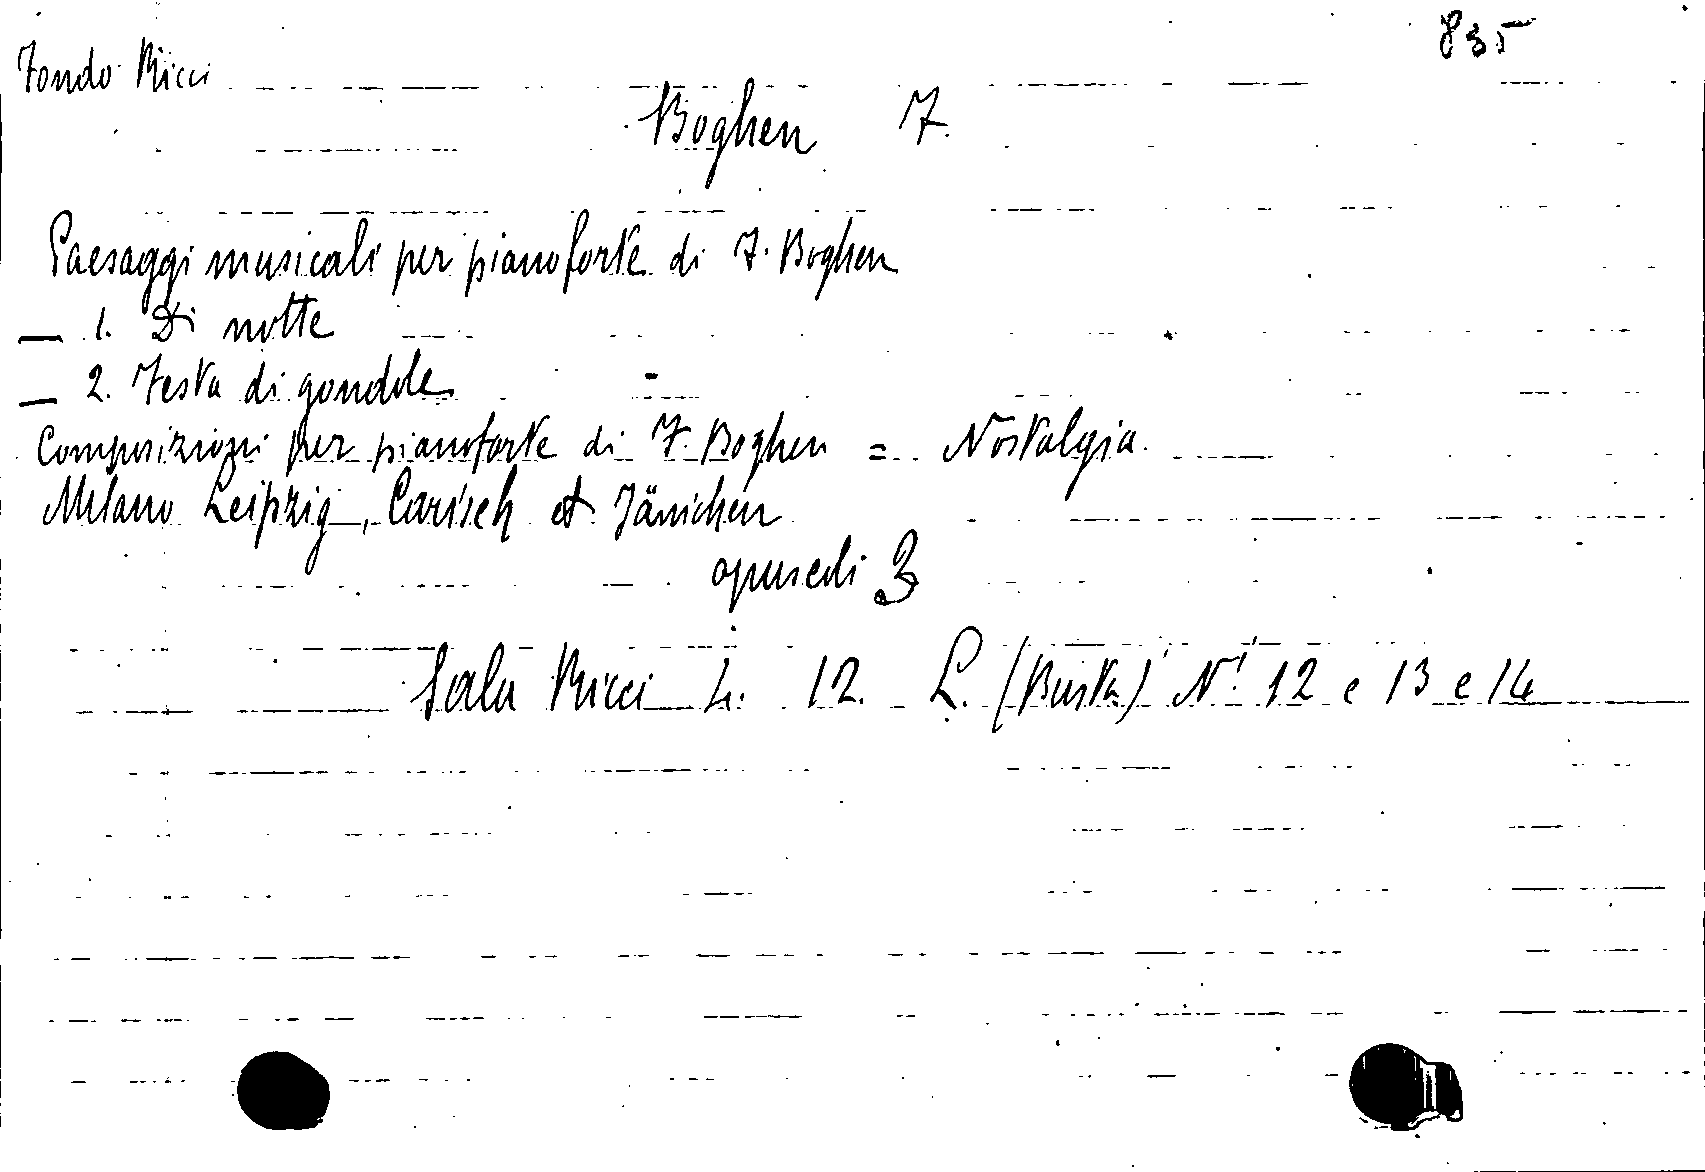 835
Fondo Ricci
Boghen F.
Paesaggi musicali per pianoforte di F. Boghen
— 1. Di notte
— 2. Festa di gondole
Composizioni per pianoforte di F. Boghen = Nostalgia.
Milano Leipzig, Carisch et Jänichen
opuscoli 3
Sala Ricci L. 12. L. (Busta) Nⁱ. 12 e 13 e 14